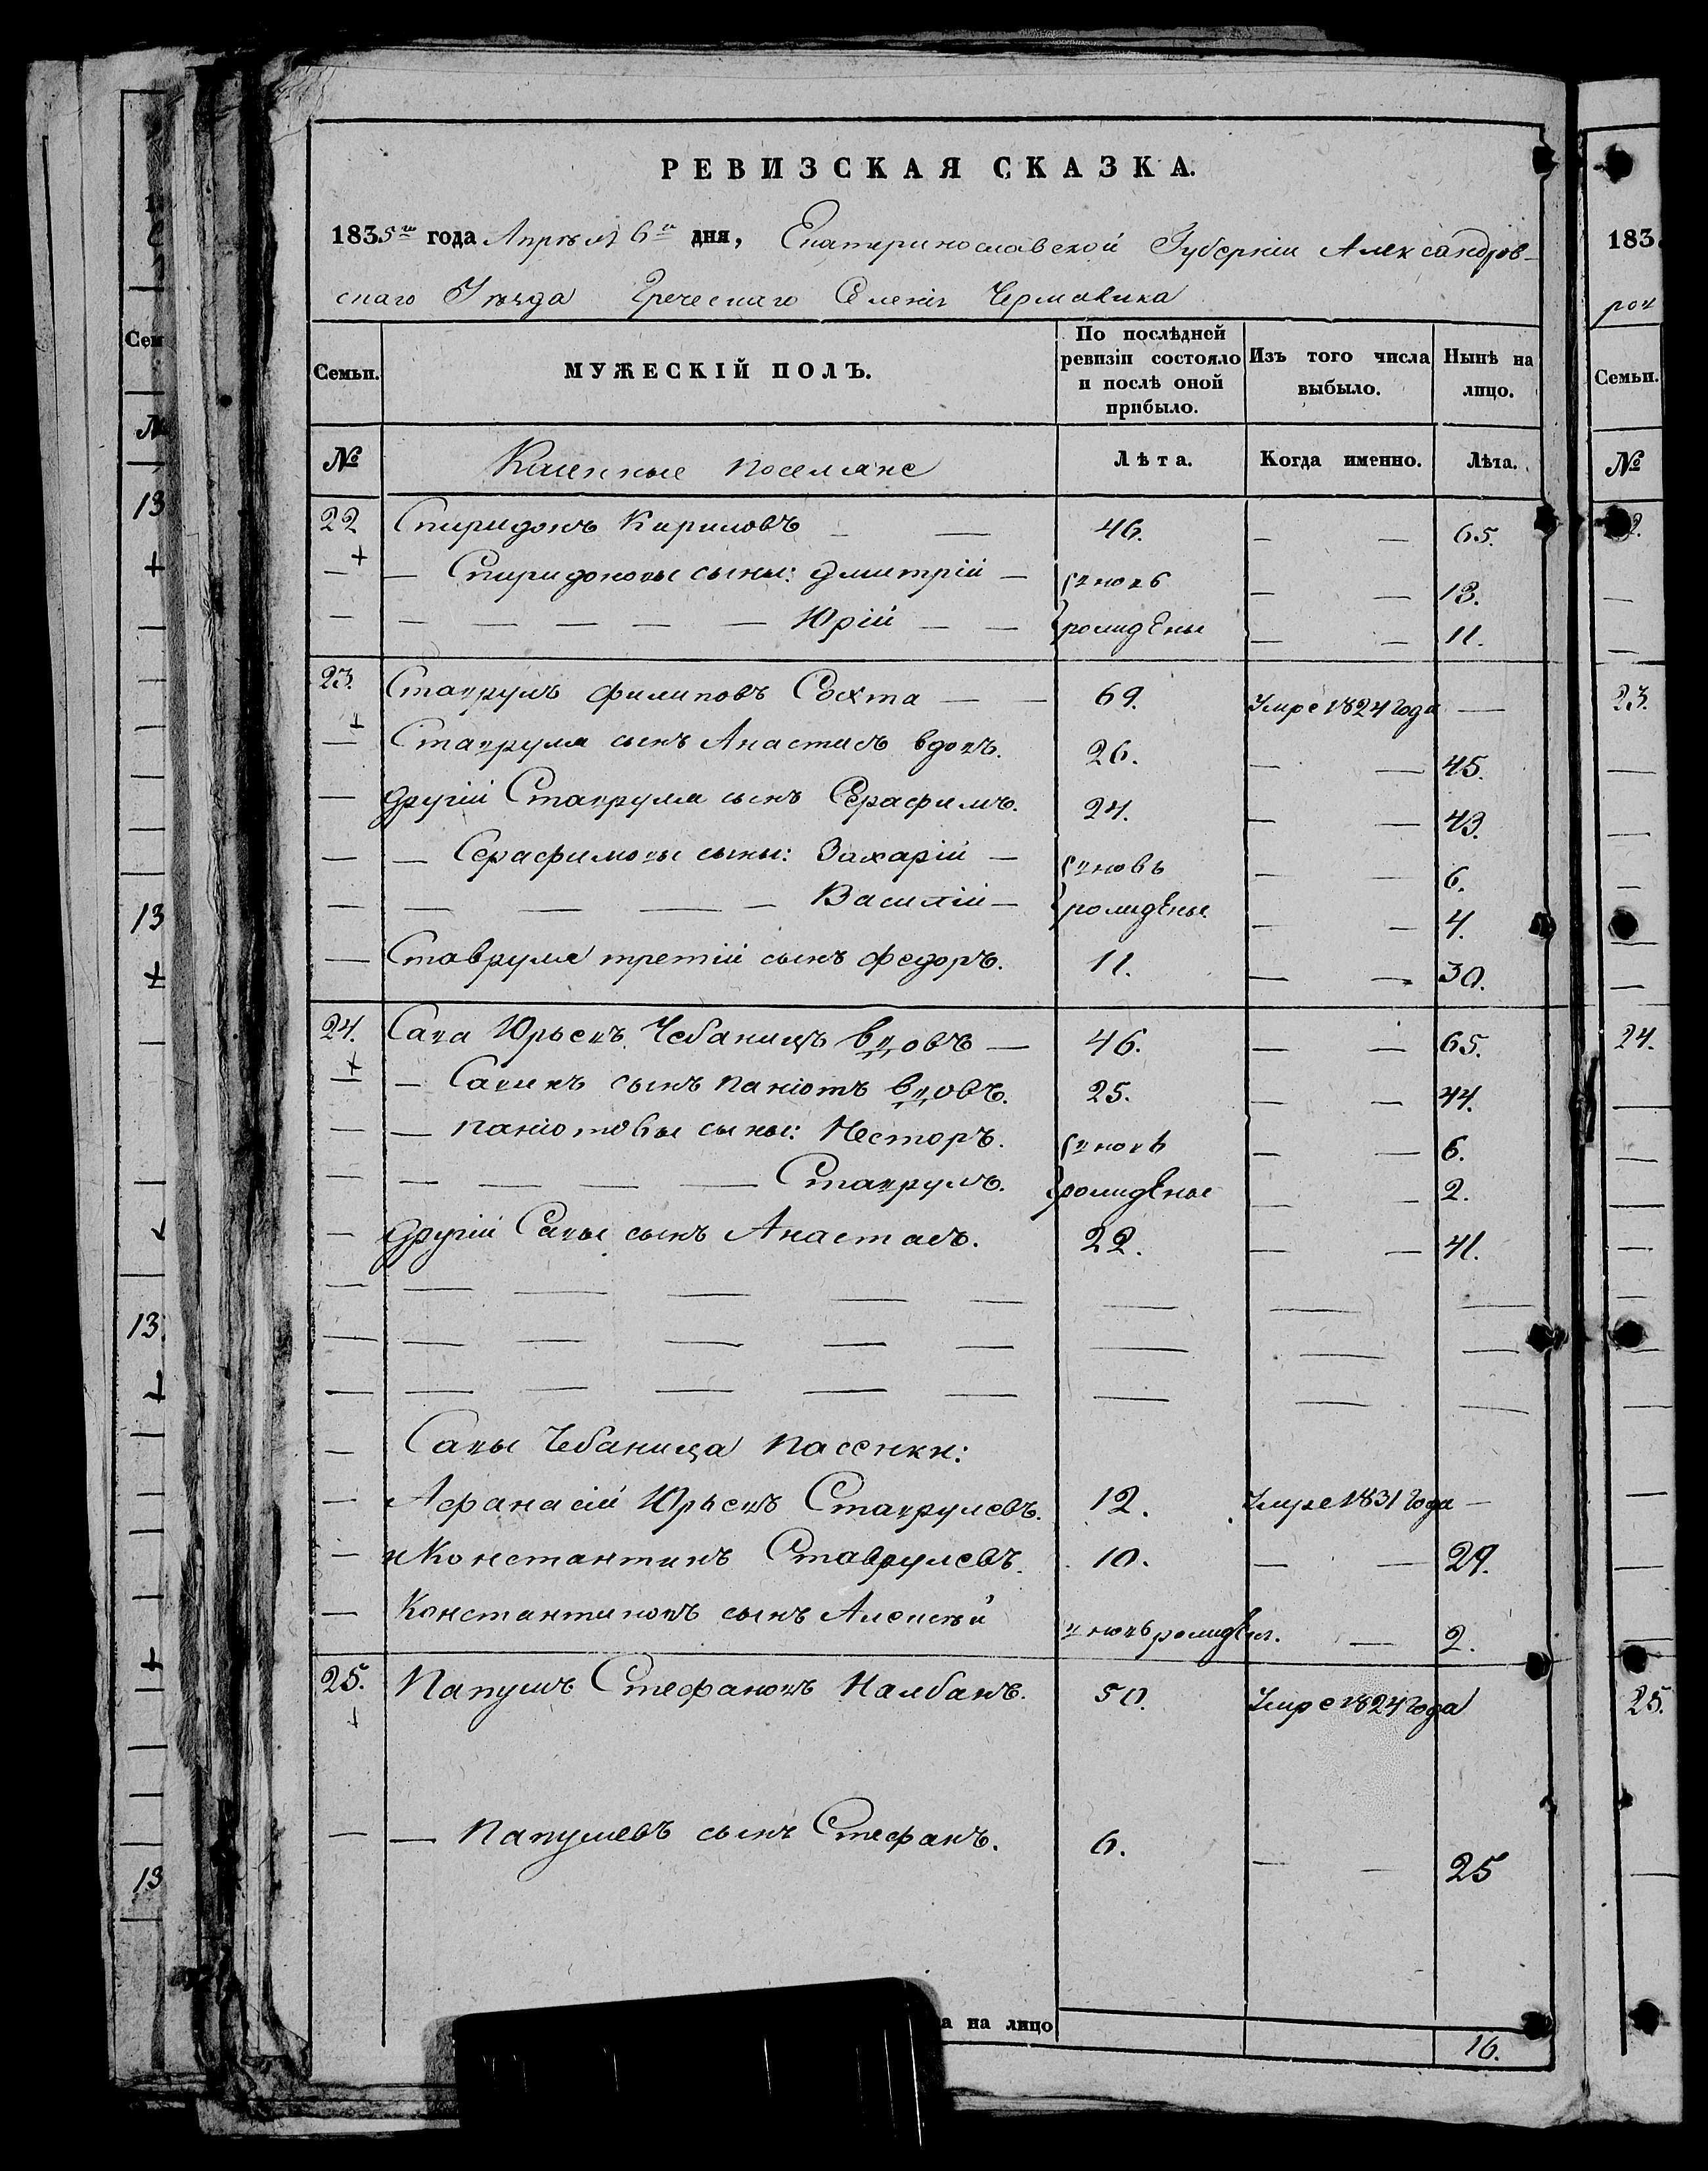 РЕВИЗСКАЯ СКАЗКА.
1835го года Апреля 6го дня, Екатеринославской Губерніи Александров-
скаго Уезда Греческаго Селенія Чермалика
Семьи. МУЖЕСКІЙ ПОЛЪ. По послѣдней ревизіи состояло и послѣ оной прибыло. Изъ того числа выбыло. Нынѣ на лицо.
№ Казенные поселяне Лѣта. Когда именно. Лѣта.
22 Спиридонъ Кириловъ — — 46. — — 65.
+
— — Спиридоновы сыны: Дмитрій — вновь — — 13.
— — — — — — — Юрій — — рожденые — — 11.
23. Ставрулъ Филиповъ Сохта — — 69. Умре 1824 года —
+
— Ставрула сынъ Анастасъ вдовъ. 26. — — 45.
— другій Ставрула сынъ Серафимъ. 24. — — 43.
— — Серафимовы сыны: Захарій — вновь — — 6.
— — — — — Василій — рожденые — — 4.
— Ставрула третій сынъ Федоръ. 11. — — 30.
24. Сава Юрьевъ Чебаницъ вдовъ — 46. — — 65.
+
— — Савинъ сынъ Паніотъ вдовъ. 25. — — 44.
— — Паніотовы сыны: Несторъ. вновь — — 6.
— — — — — — Ставрулъ. рожденые — — 2.
— другій Савы сынъ Анастасъ. 22. — — 41.
— Савы Чебаница пасенки:
— Афанасій Юрьевъ Ставрулевъ. 12. Умре 1831 года —
— и Константинъ Ставрулевъ. 10. — — 29.
— Константиновъ сынъ Алексѣй вновь рожден. — 2.
25. Папушъ Стефановъ Налбанъ. 50. Умре 1824 года
+
— — Папушевъ сынъ Стефанъ. 6. — — 25
а на лицо 16.
Сем
№
13
+
13
+
13
+
+
13
183
роч
Семьи.
№
23.
24.
25.